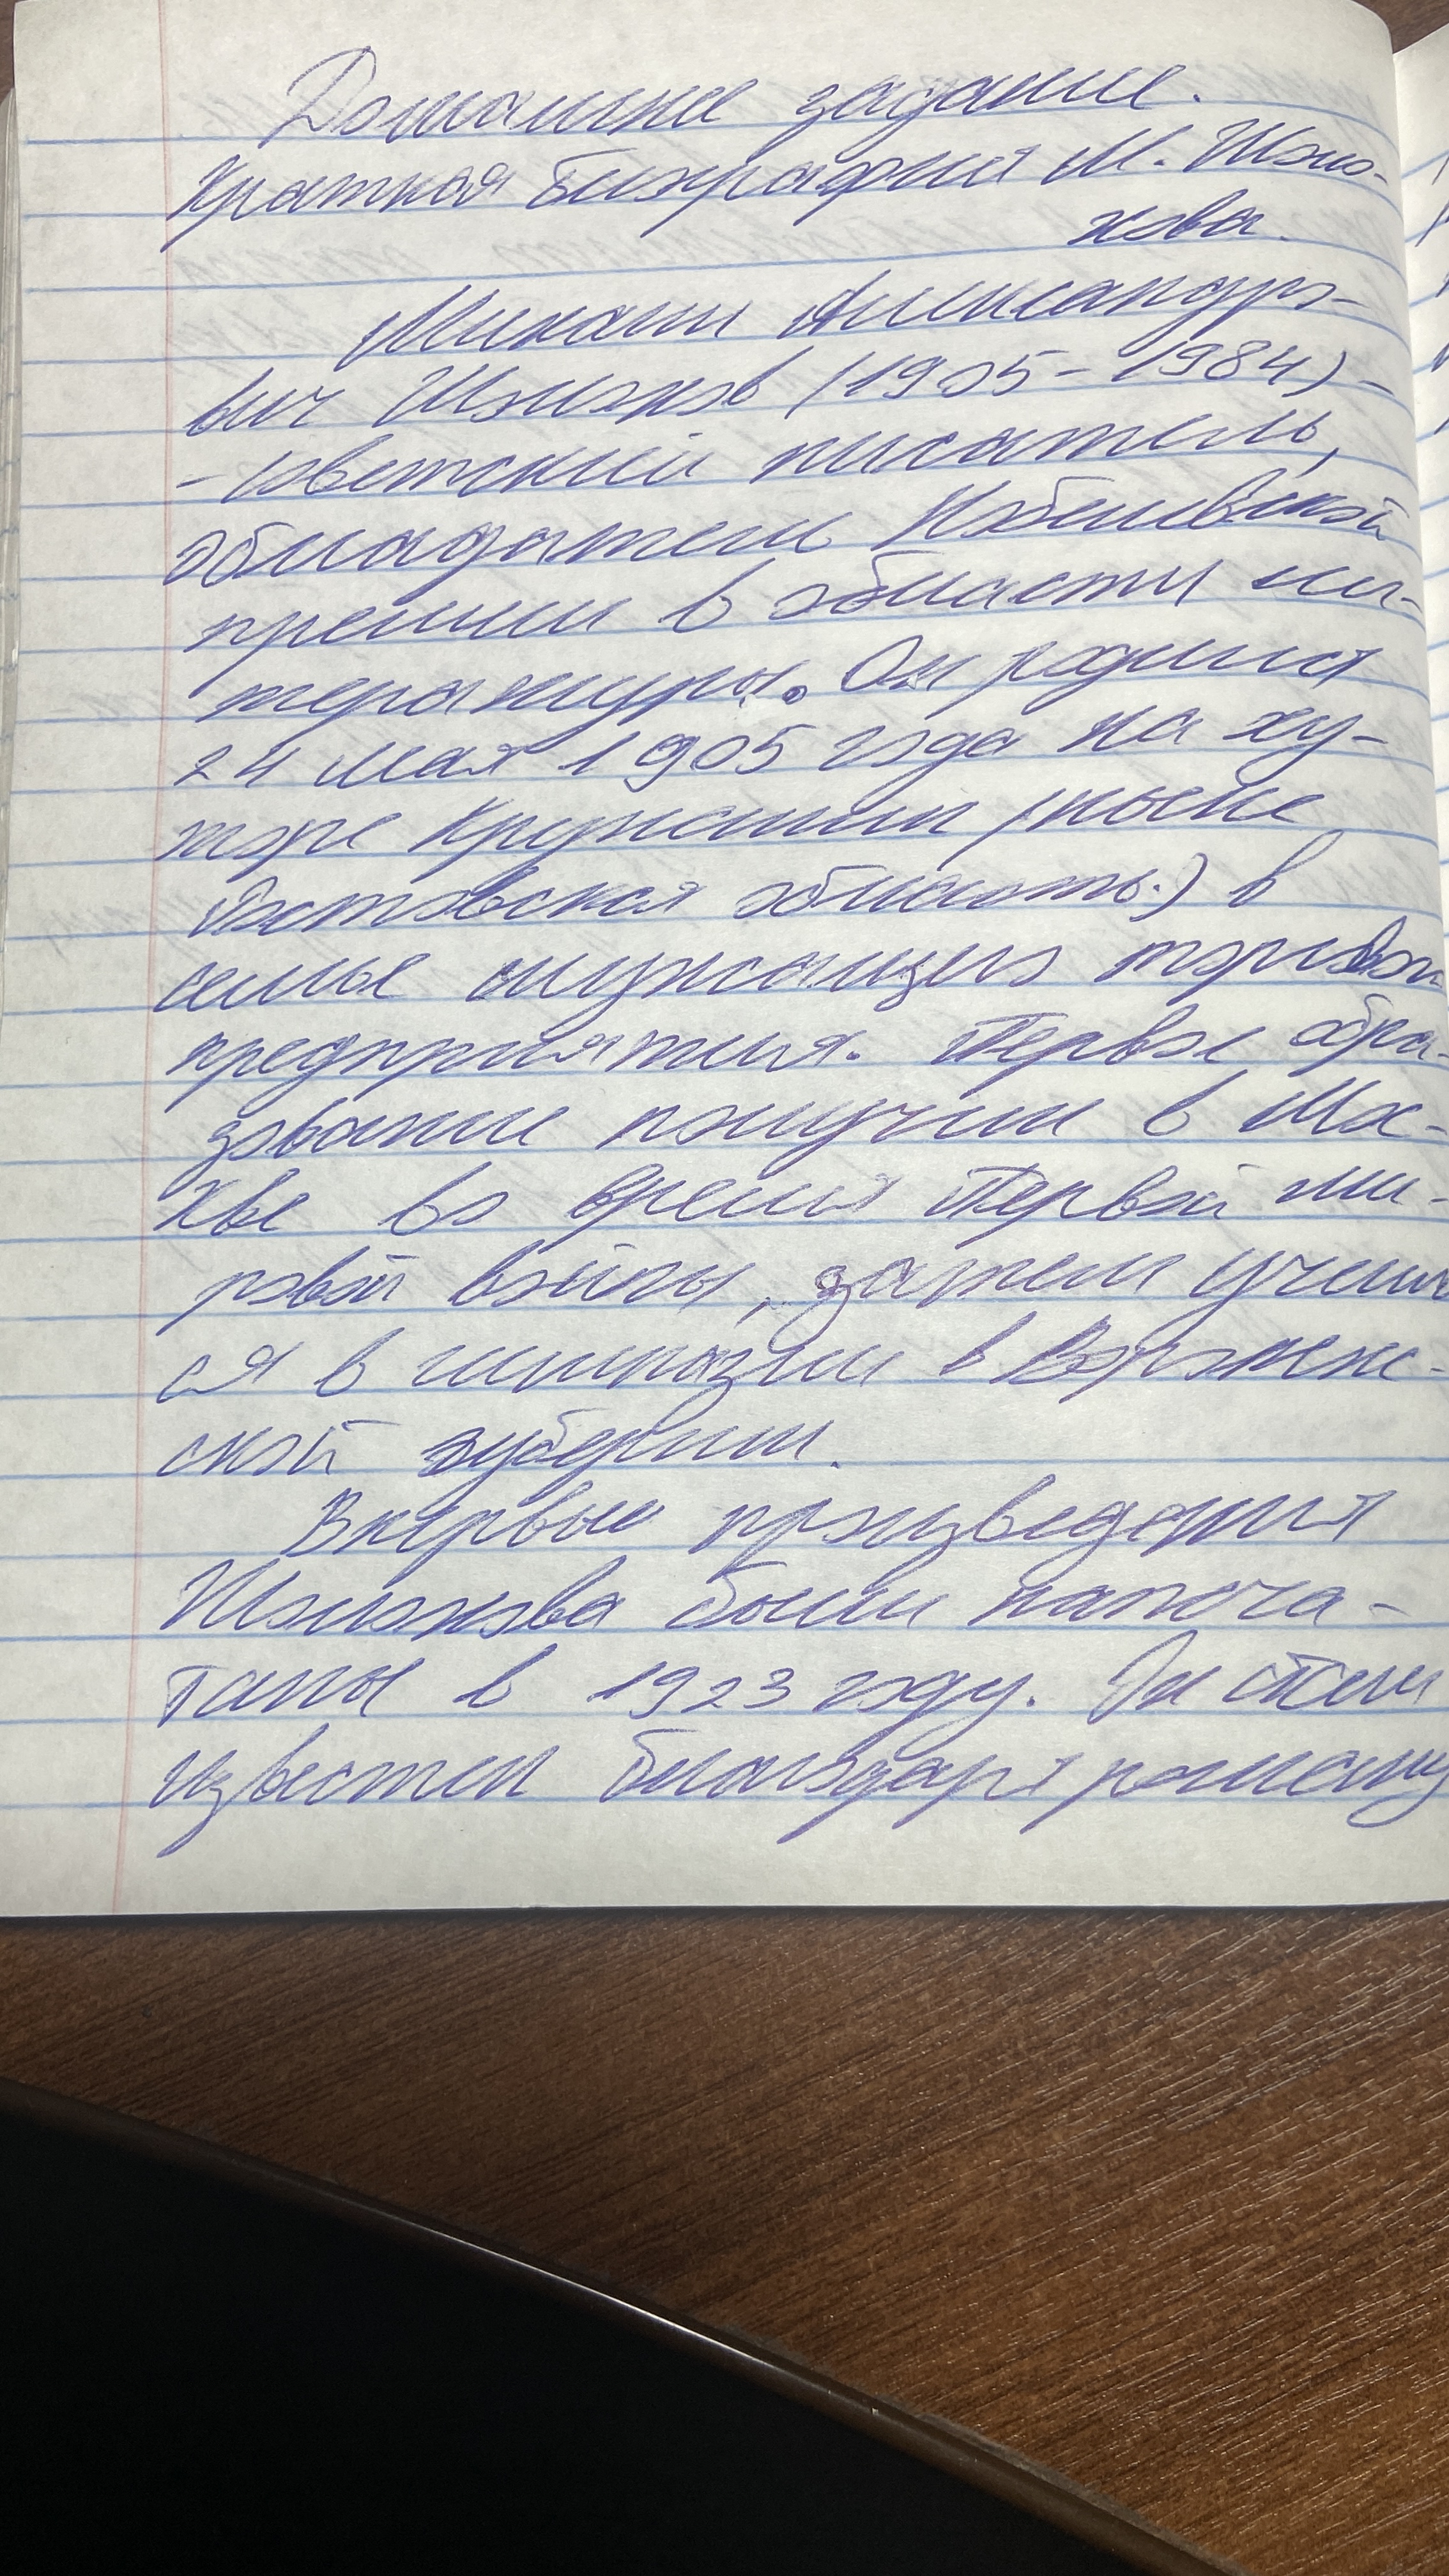 Домашнее задание.
Краткая биография М. Шоло-
хова.
Михаил Александро-
вич Шолохов (1905-1984)-
- советский писатель,
обладатель Нобелевской
премии в области ли-
тературы. Он родился
24 мая 1905 года на ху-
торе Кружилин (ныне
Ростовская область.) в
семье служащего торгового
предприятия. Первое обра-
зование получил в Мос-
кве во время Первой ми-
ровой войны, затем учил
ся в гимназии в Воронеж-
ской губернии.
Впервые произведения
Шолохова были напеча-
таны в 1923 году. Он стал
известен благодаря роману